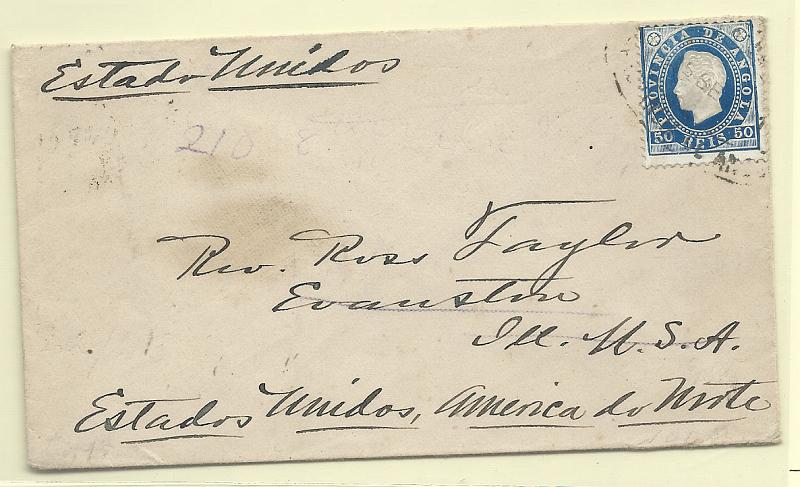 Estado Unidos
PROVINCIA DE ANGOLA
50 REIS 50
210 8
Rev. Ross Taylor
Evanston
Ill. U.S.A.
Estados Unidos, America do Norte